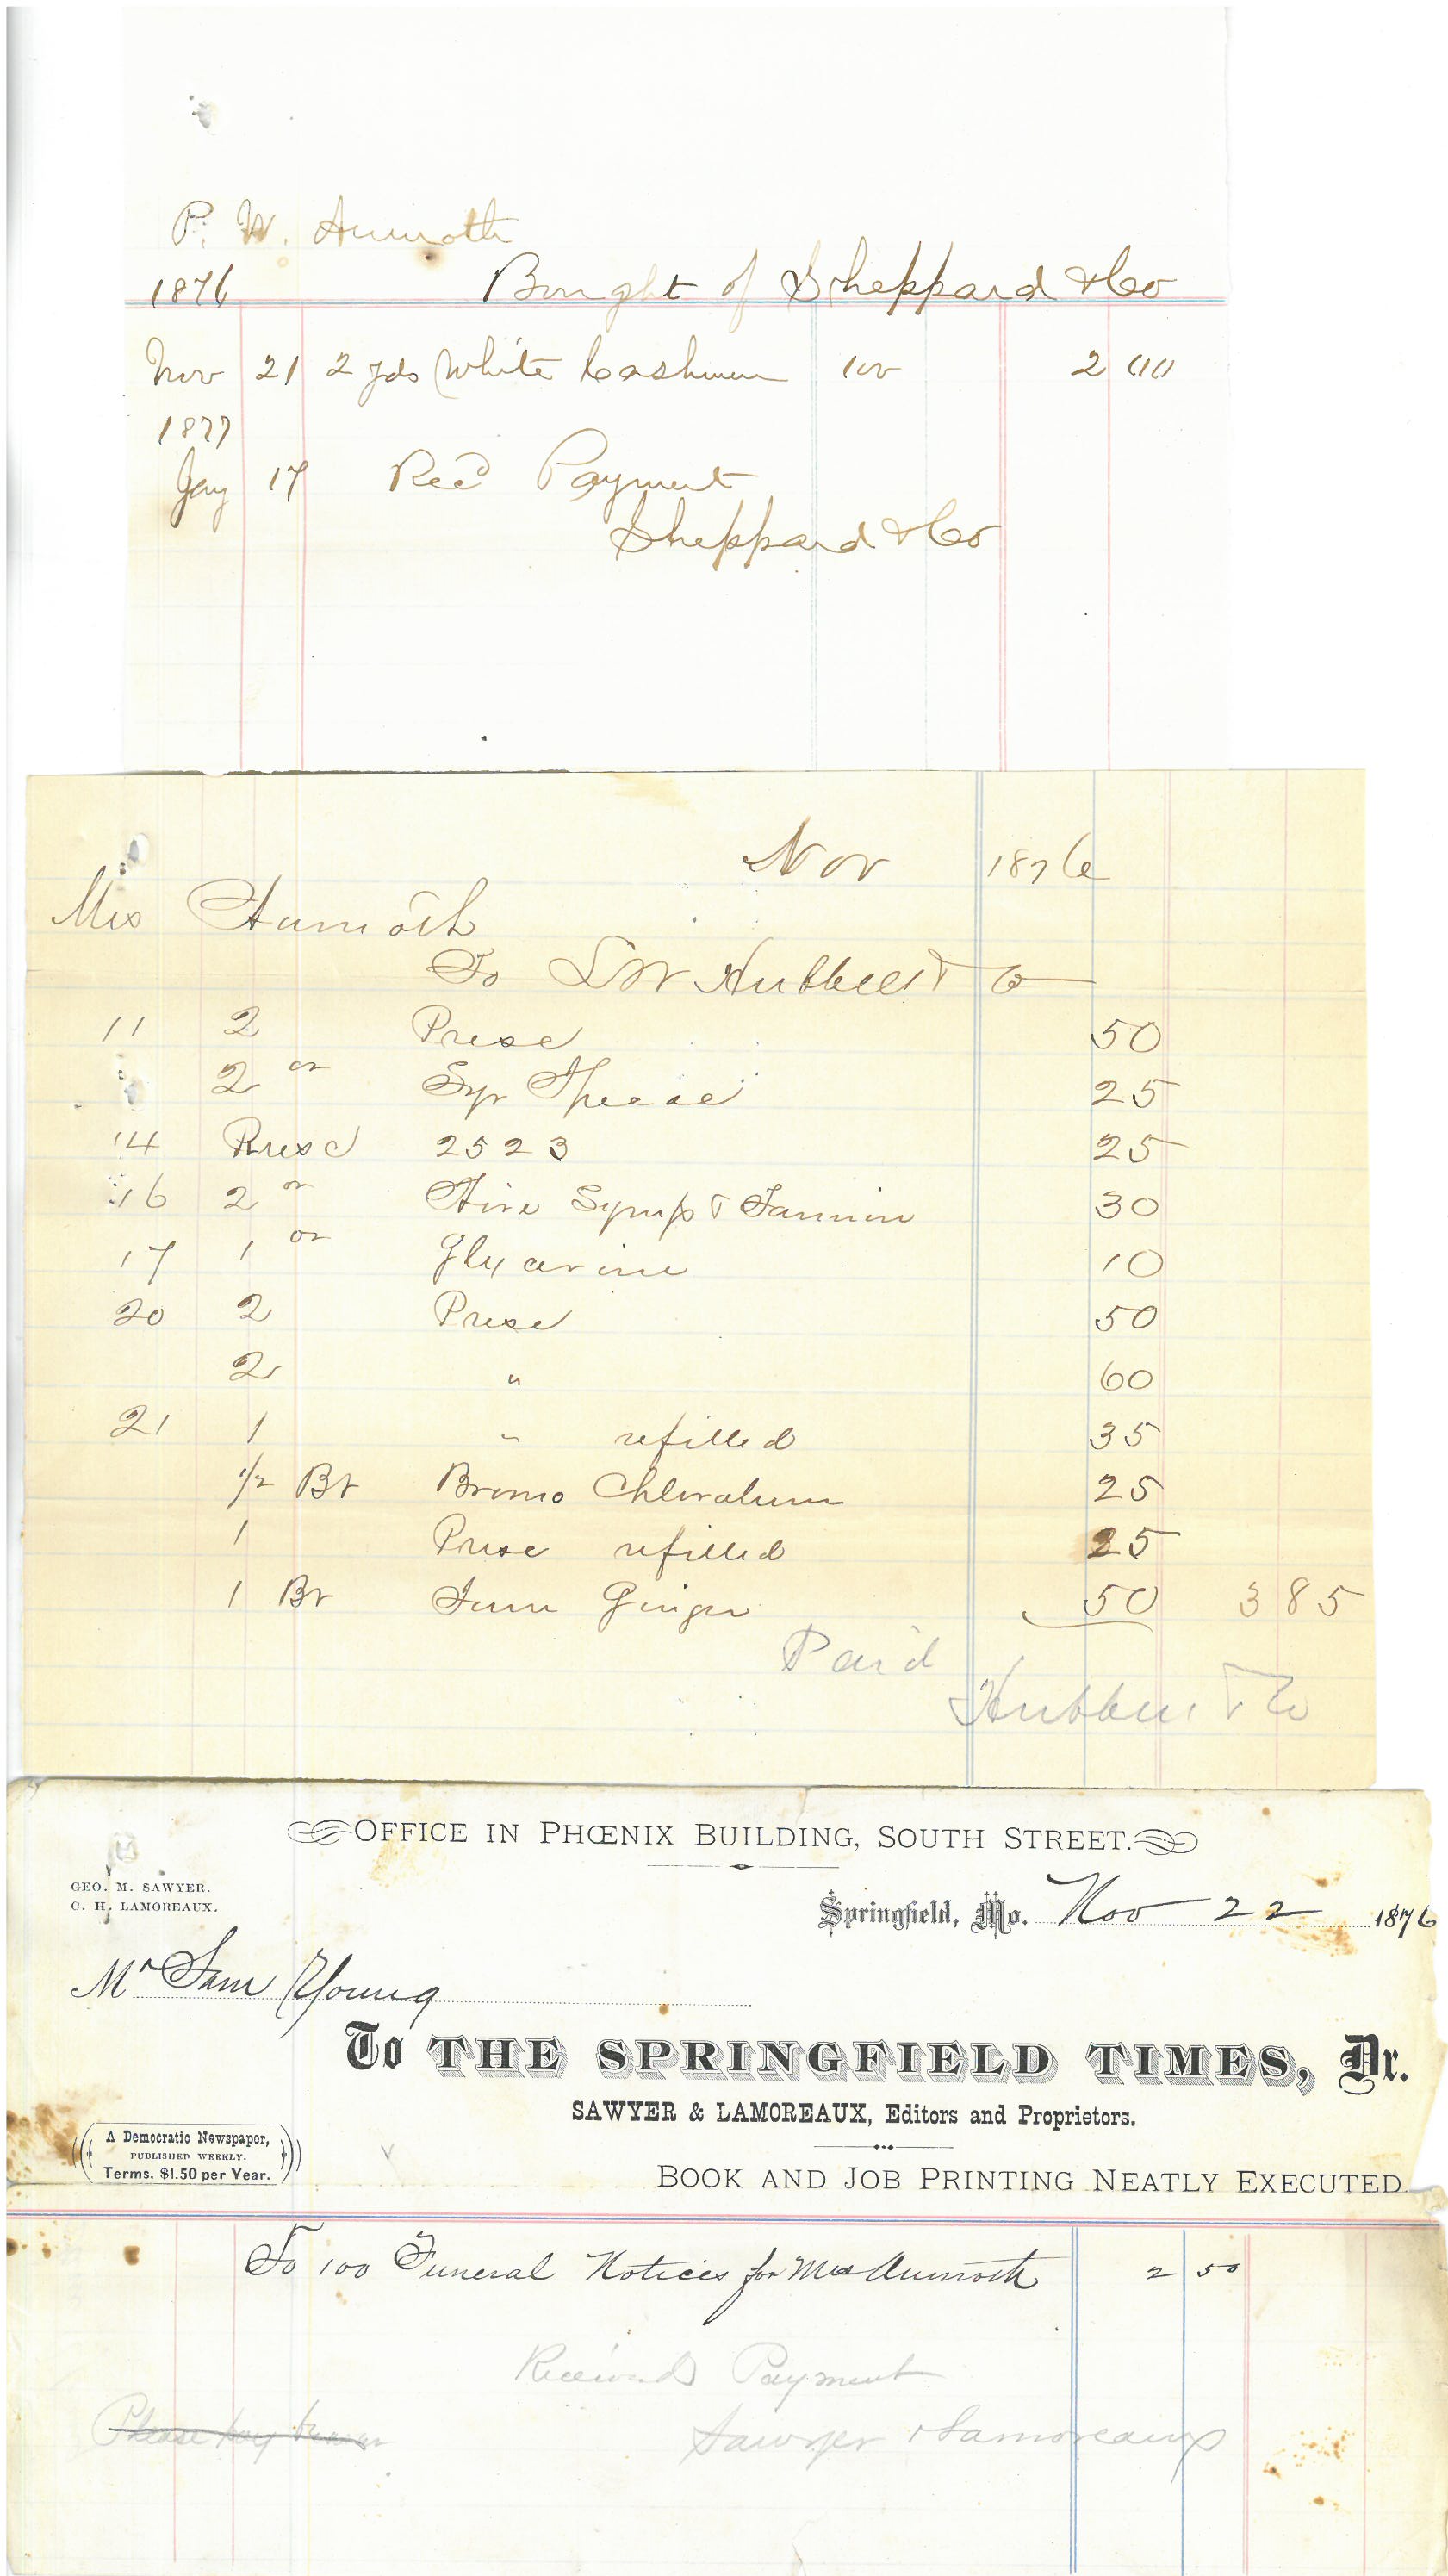 P. W. Aumoth
1876 Bought of Sheppard & Co
Nov 21 2 yds White Cashmere 100 2 00
1877
Jany 17 Recd Payment
Sheppard & Co
Nov 1876
Mrs Aumoth
To Hubbell & Co
11 2 Presc 50
2 oz Syr 25
14 Presc 2523 25
16 2 oz Hive Syrup & Tannin 30
17 1 oz Glycerine 10
20 2 Presc 50
2 " 60
21 1 " refilled 35
1/2 Bt Bromo Chloralum 25
1 Presc refilled 25
1 Bt Jam Ginger 50 3 85
Paid
Hubbell & Co
OFFICE IN PHŒNIX BUILDING, SOUTH STREET.
GEO. M. SAWYER.
C. H. LAMOREAUX.
Springfield, Mo. Nov 22 1876
Mr Sam Young
To THE SPRINGFIELD TIMES, Dr.
SAWYER & LAMOREAUX, Editors and Proprietors.
A Democratic Newspaper,
PUBLISHED WEEKLY.
Terms. $1.50 per Year.
BOOK AND JOB PRINTING NEATLY EXECUTED.
To 100 Funeral Notices for Mrs Aumoth 2 50
Received Payment
Please pay bearer
Sawyer & Lamoreaux